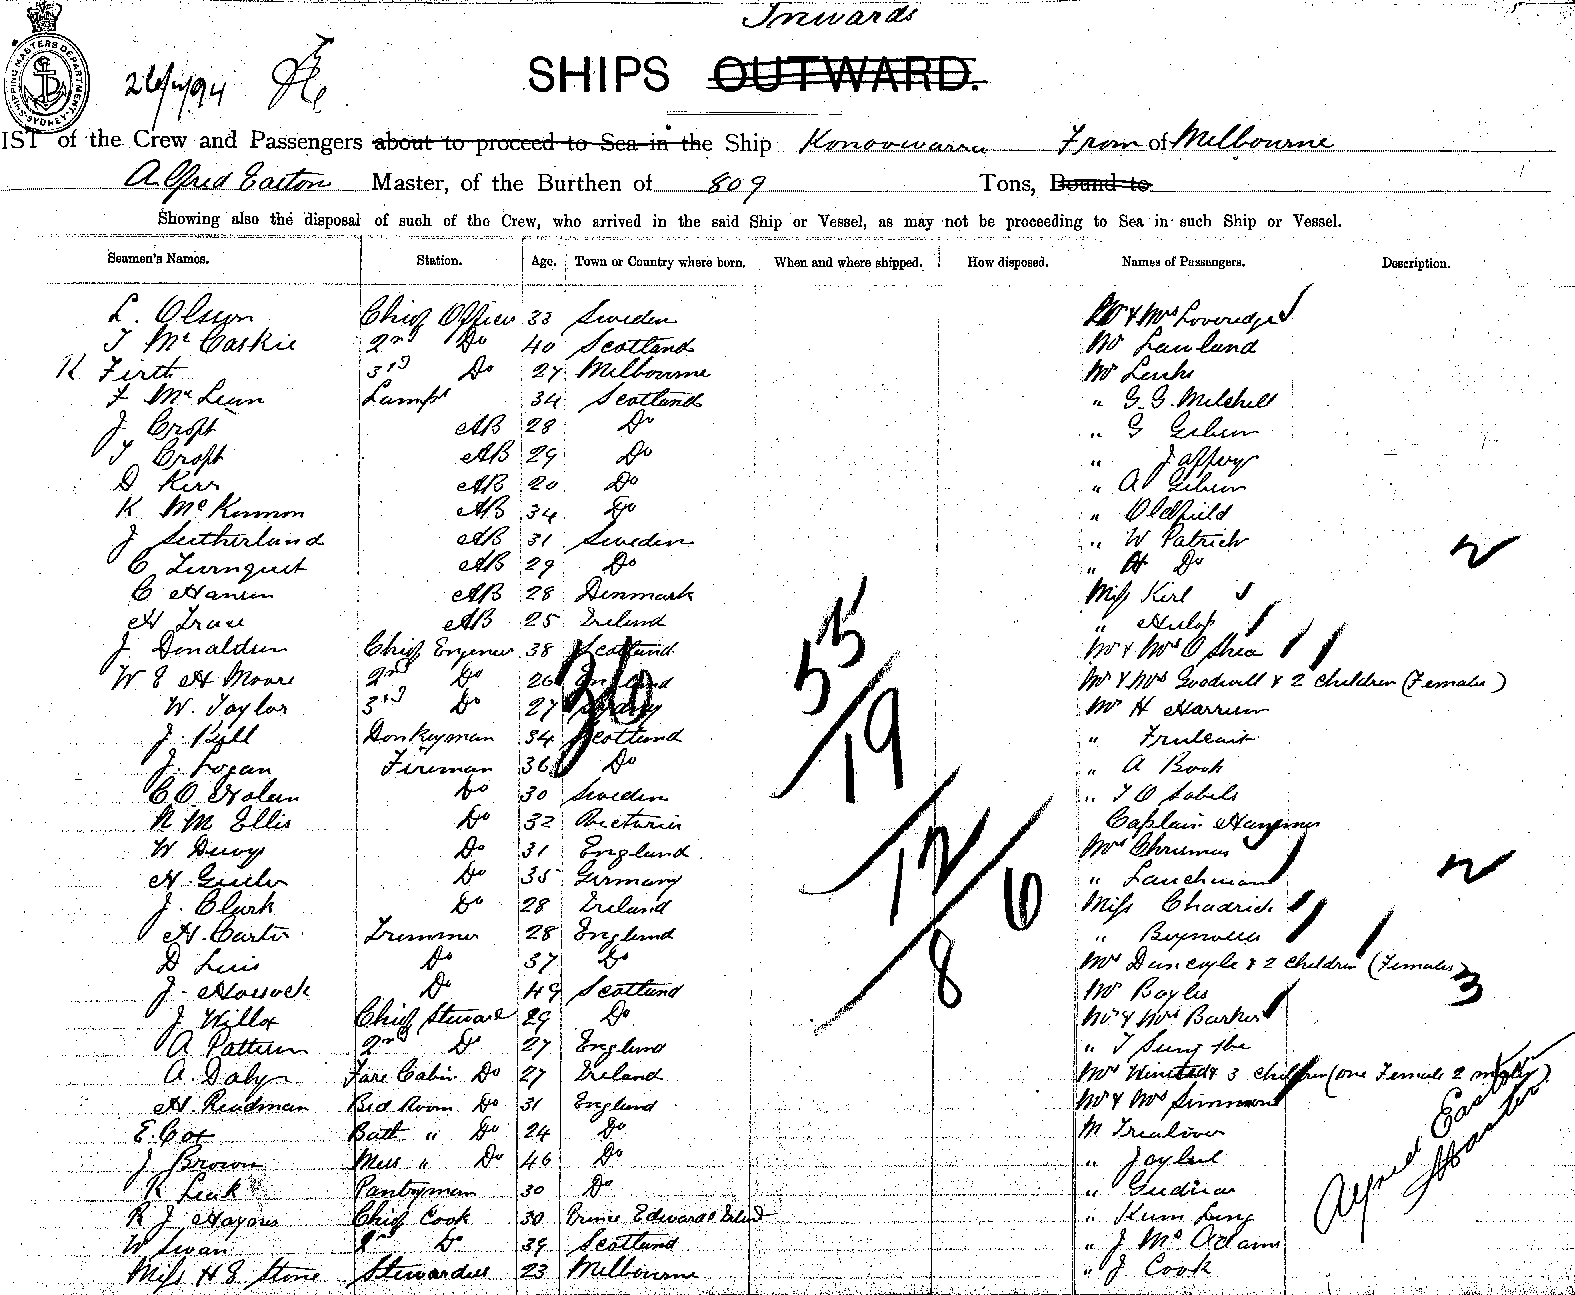 Inwards
SHIPPING MASTERS DEPARTMENT SYDNEY
SHIPS OUTWARD.
IST of the Crew and Passengers about to proceed to Sea in the Ship Konoowarra From of Melbourne
Alfred Easton Master, of the Burthen of 809 Tons, Bound to
Showing also the disposal of such of the Crew, who arrived in the said Ship or Vessel, as may not be proceeding to Sea in such Ship or Vessel.
Seamen's Names. Station. Age. Town or Country where born. When and where shipped. How disposed. Names of Passengers. Description.
L. Olsson Chief Officer 33 Sweden Mr & Mrs Loveridge
T McCaskie 2nd Do 40 Scotland Mr Lawland
R Firth 3rd Do 27 Melbourne Mr
F McLean Lamps 34 Scotland " G. G. Mitchell
J Croft AB 28 Do " G Gibson
T Croft AB 29 Do " Jaffery
D Kerr AB 20 Do " A Gibson
K McKinnon AB 34 Do " Oldfield
J Sutherland AB 31 Sweden " W Patrick
C AB 29 Do " H Do
C Hansen AB 28 Denmark Miss Kirl
H AB 25 Ireland "
J. Donaldson Chief Engineer 38 Scotland Mr & Mrs O Shea
W E H Moore 2nd Do 26 England Mr & Mrs Goodwill & 2 children (Females)
W. Taylor 3rd Do 27 Sydney Mr H Harrison
J. Donkeyman 34 Scotland "
J. Logan Fireman 36 Do " A Book
C O Do 30 Sweden " T O Sabels
R M Ellis Do 32 Victoria Captain
W Do 31 England Mrs
H Do 35 Germany "
J. Clark Do 28 Ireland Miss Chadrick
H. Carter Trimmer 28 England " Reynolds
D Luis Do 37 Do Mrs & 2 children (Females)
J. Hossock Do 49 Scotland Mr Boyles
J Willox Chief Steward 29 Do Mr & Mrs Barker
A Patterson 2nd Do 27 England " T Sung
A. Daly Fore Cabin Do 27 Ireland Mrs & 3 children (one Female 2 males)
H. Readman Bed Room Do 31 England Mr & Mrs Simmons
E. Cox Bath " Do 24 Do M
J Brown Mess " Do 46 Do "
R Leak Pantryman 30 Do "
R J Haynes Chief Cook 30 Prince Edwards Island " Kum Ling
W Swan 2nd Do 39 Scotland " J McAdam
Miss H E Stone Stewardess 23 Melbourne " J Cook
36
55
19
12
6
8
2
2
3
Alfred Easton
Master